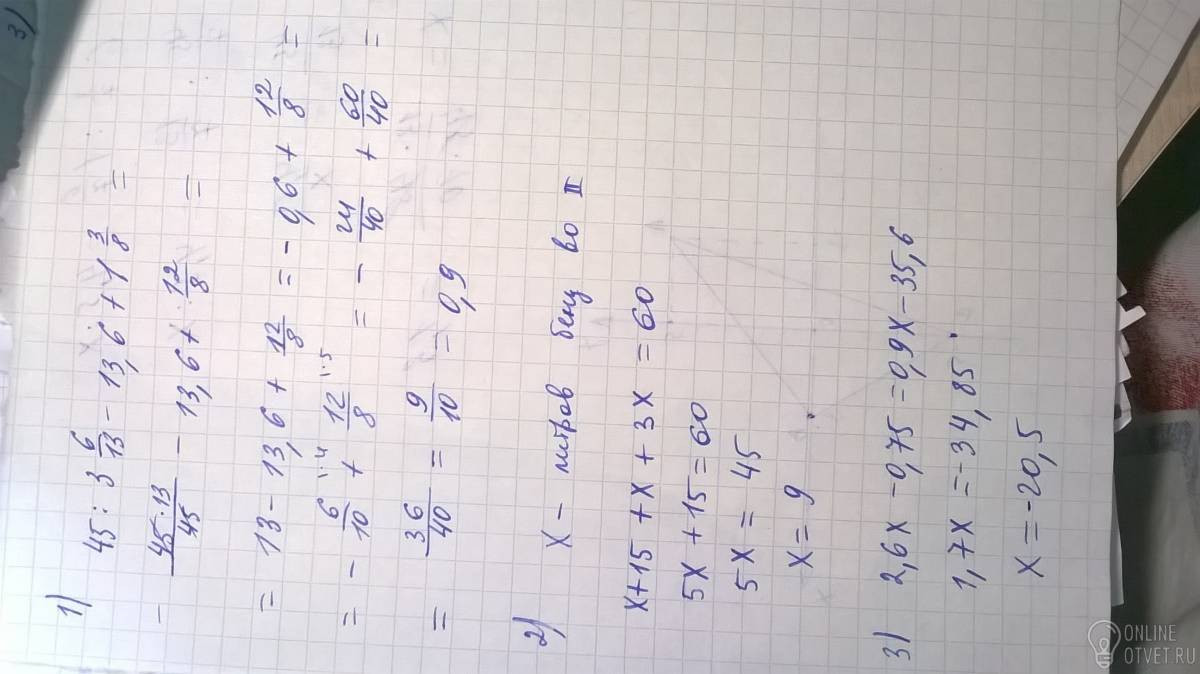 1) 45 : 3 6/13 - 13,6 + 1 3/8 =
- 45·13/45 - 13,6 + 12/8 =
= 13 - 13,6 + 12/8 = - 0,6 + 12/8 =
= - 6/10 + 12/8 = - 24/40 + 60/40 =
= 36/40 = 9/10 = 0,9
2) X - литров бенз во II
x+15 + x + 3x = 60
5x + 15 = 60
5x = 45
x = 9
3) 2,6x - 0,75 = 0,9x - 35,6
1,7x = -34,85
x = -20,5
3)
ONLINE
OTVET.RU